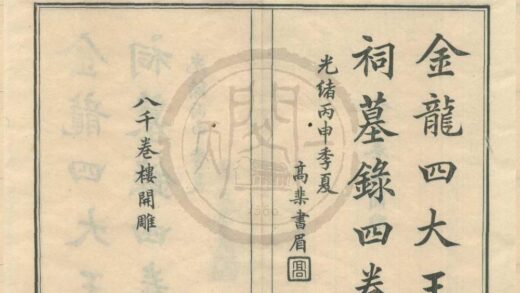 金龍四大王
祠墓錄四卷
光緒丙申季夏
高棐書眉
八千卷樓開雕